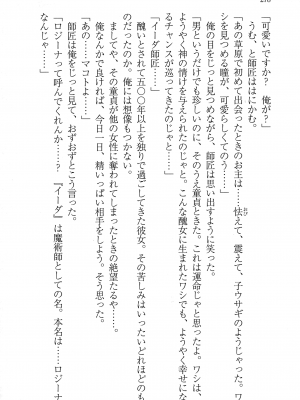 「可愛いですか？　俺が？」
「うむ」と師匠ははにかむ。
「あの草原で初めて出会ったときのお主は……怯えて、震えて、子ウサギのようじゃった。ワ
シを見つめる瞳が、可愛らしくての……」
俺の目をじっと見つめながら、師匠は思い出すように笑った。
「男というだけでも珍しいのに、そのうえ童貞ときた。これは運命じゃと思ったよ。ワシは、
ようやく神の情けを与えられたのじゃと。こんな醜女に生まれたワシでも、ようやく幸せにな
るチャンスが巡ってきたのじゃと……」
「イーダ師匠……」
醜いとされて五〇〇年以上を独りで過ごしてきた彼女。その苦しみはいったいどれほどのも
のだったのか。俺には想像もつかない。
ましてや、その童貞が他の女性に奪われてしまったときの絶望たるや……。
俺なんかで良ければ、今日一日、精いっぱい相手をしよう。そう思った。
「あの……マコトよ……」
師匠は俺をじっと見て、おずおずとこう言った。
「ロジーナって呼んでくれんか……？　『イーダ』は魔術師としての名。本名は……ロジーナ
なんじゃ……」